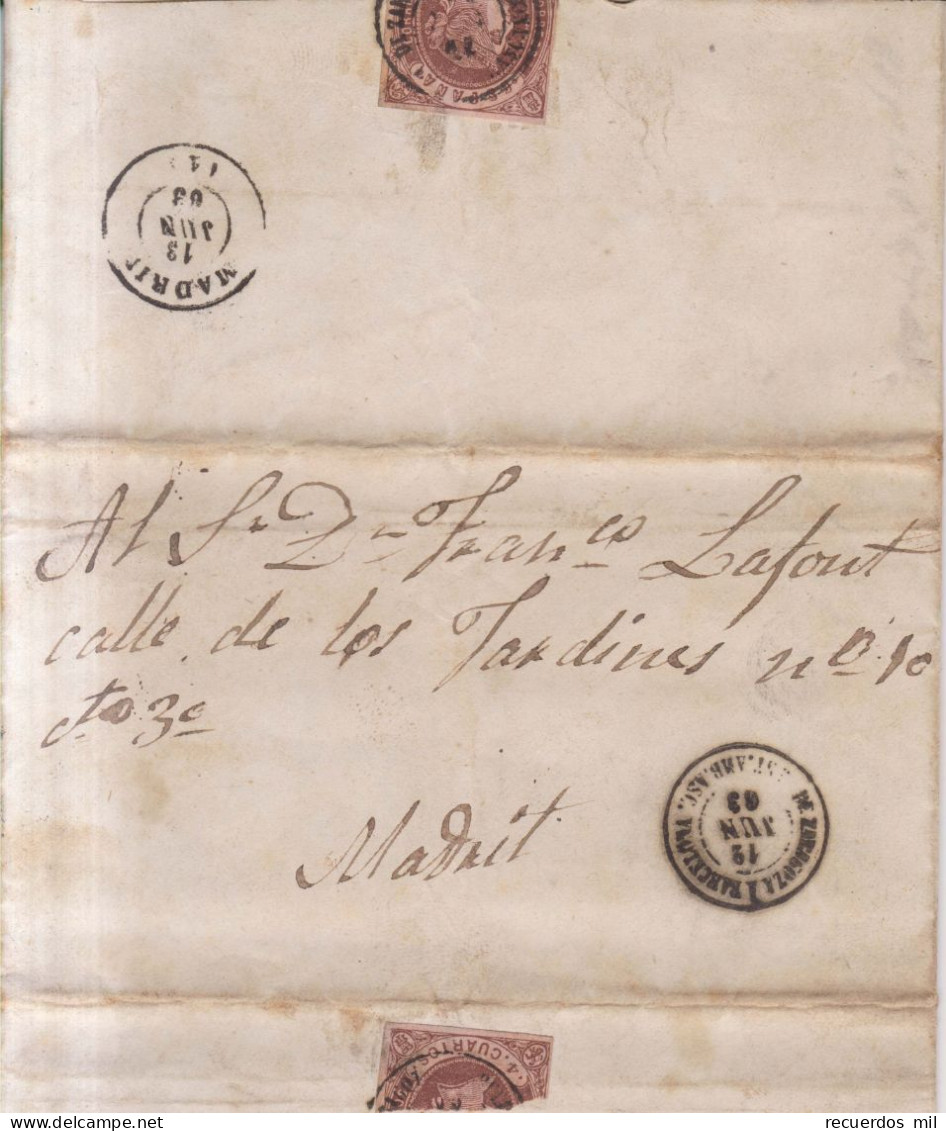 ESPAÑA
MADRID
13
JUN
63
Al Sr Dn Franco Lafont
calle de los Jardines no 10
cto 3o
Madrit
DE ZARAGOZA Á BARCELONA
EST. AMB. ASC.
12
JUN
63
4. CUARTOS
recuerdos mil